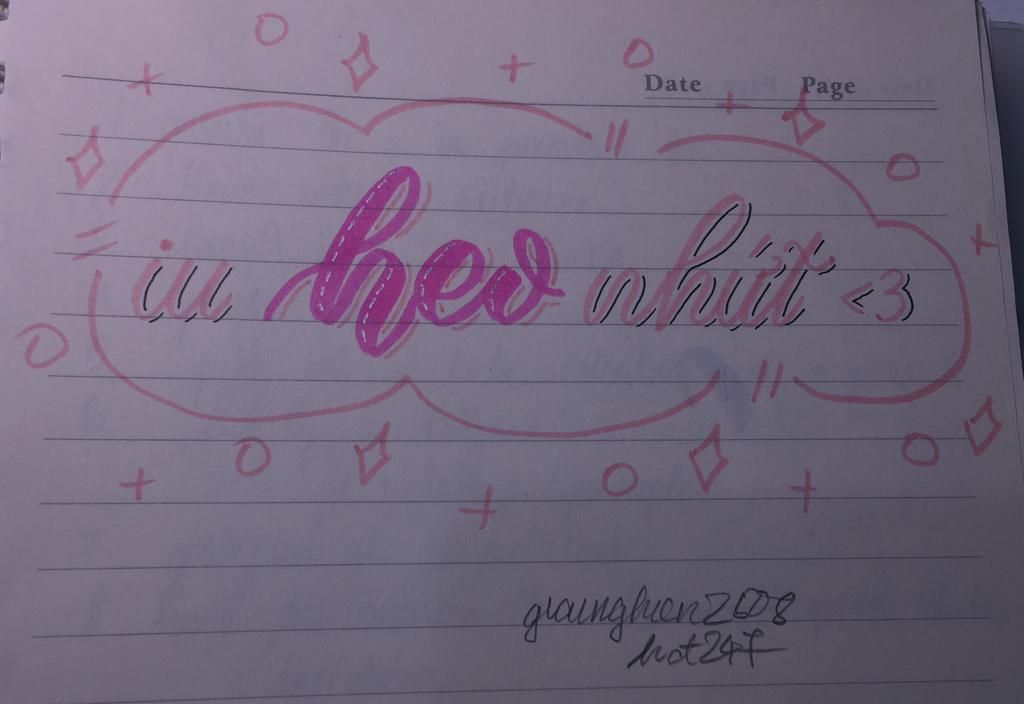 Date Page
iu heo nhứt <3
gianghien2008
hot247